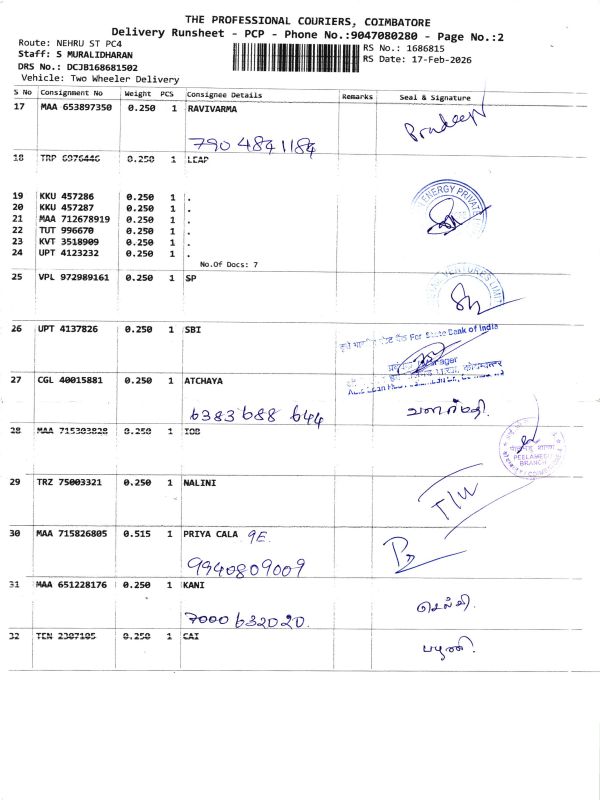 THE PROFESSIONAL COURIERS, COIMBATORE
Delivery Runsheet - PCP - Phone No.:9047080280 - Page No.:2
Route: NEHRU ST PC4
Staff: S MURALIDHARAN
DRS No.: DCJB168681502
Vehicle: Two Wheeler Delivery
RS No.: 1686815
RS Date: 17-Feb-2026
S No Consignment No Weight PCS Consignee Details Remarks Seal & Signature
17 MAA 653897350 0.250 1 RAVIVARMA
Pradeep
790 4841184
18 TRP 6976446 0.250 1 LEAP
19 KKU 457286 0.250 1 .
20 KKU 457287 0.250 1 .
21 MAA 712678919 0.250 1 .
22 TUT 996670 0.250 1 .
23 KVT 3518909 0.250 1 .
24 UPT 4123232 0.250 1 .
No.Of Docs: 7
ENERGY PRIVATE
25 VPL 972989161 0.250 1 SP
VENTURES LIMIT
26 UPT 4137826 0.250 1 SBI
For State Bank of India
27 CGL 40015881 0.250 1 ATCHAYA
6383688 644
வளர்மதி.
28 MAA 715303828 0.250 1 IOB
PEELAMEDU
BRANCH
COIMBATORE
29 TRZ 75003321 0.250 1 NALINI
30 MAA 715826805 0.515 1 PRIYA CALA 9E
9940809009
31 MAA 651228176 0.250 1 KANI
7000632020.
செல்வி.
32 TEN 2307105 0.250 1 CAI
பழனி.